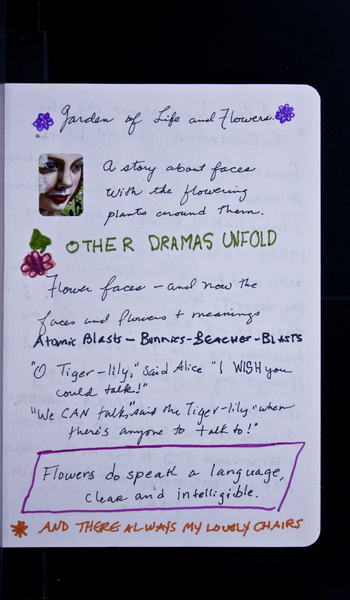 Garden of Life and Flowers.
A story about faces
with the flowering
plants around them.
OTHER DRAMAS UNFOLD
Flower faces - and now the
faces and flowers + meanings
Atomic Blasts - BUNNIES - BEACHES - BLASTS
"O Tiger-lily," said Alice "I WISH you
could talk!"
"We CAN talk," said the Tiger-lily "when
there's anyone to talk to!"
Flowers do speak a language,
clear and intelligible.
AND THERE ALWAYS MY LOVELY CHAIRS